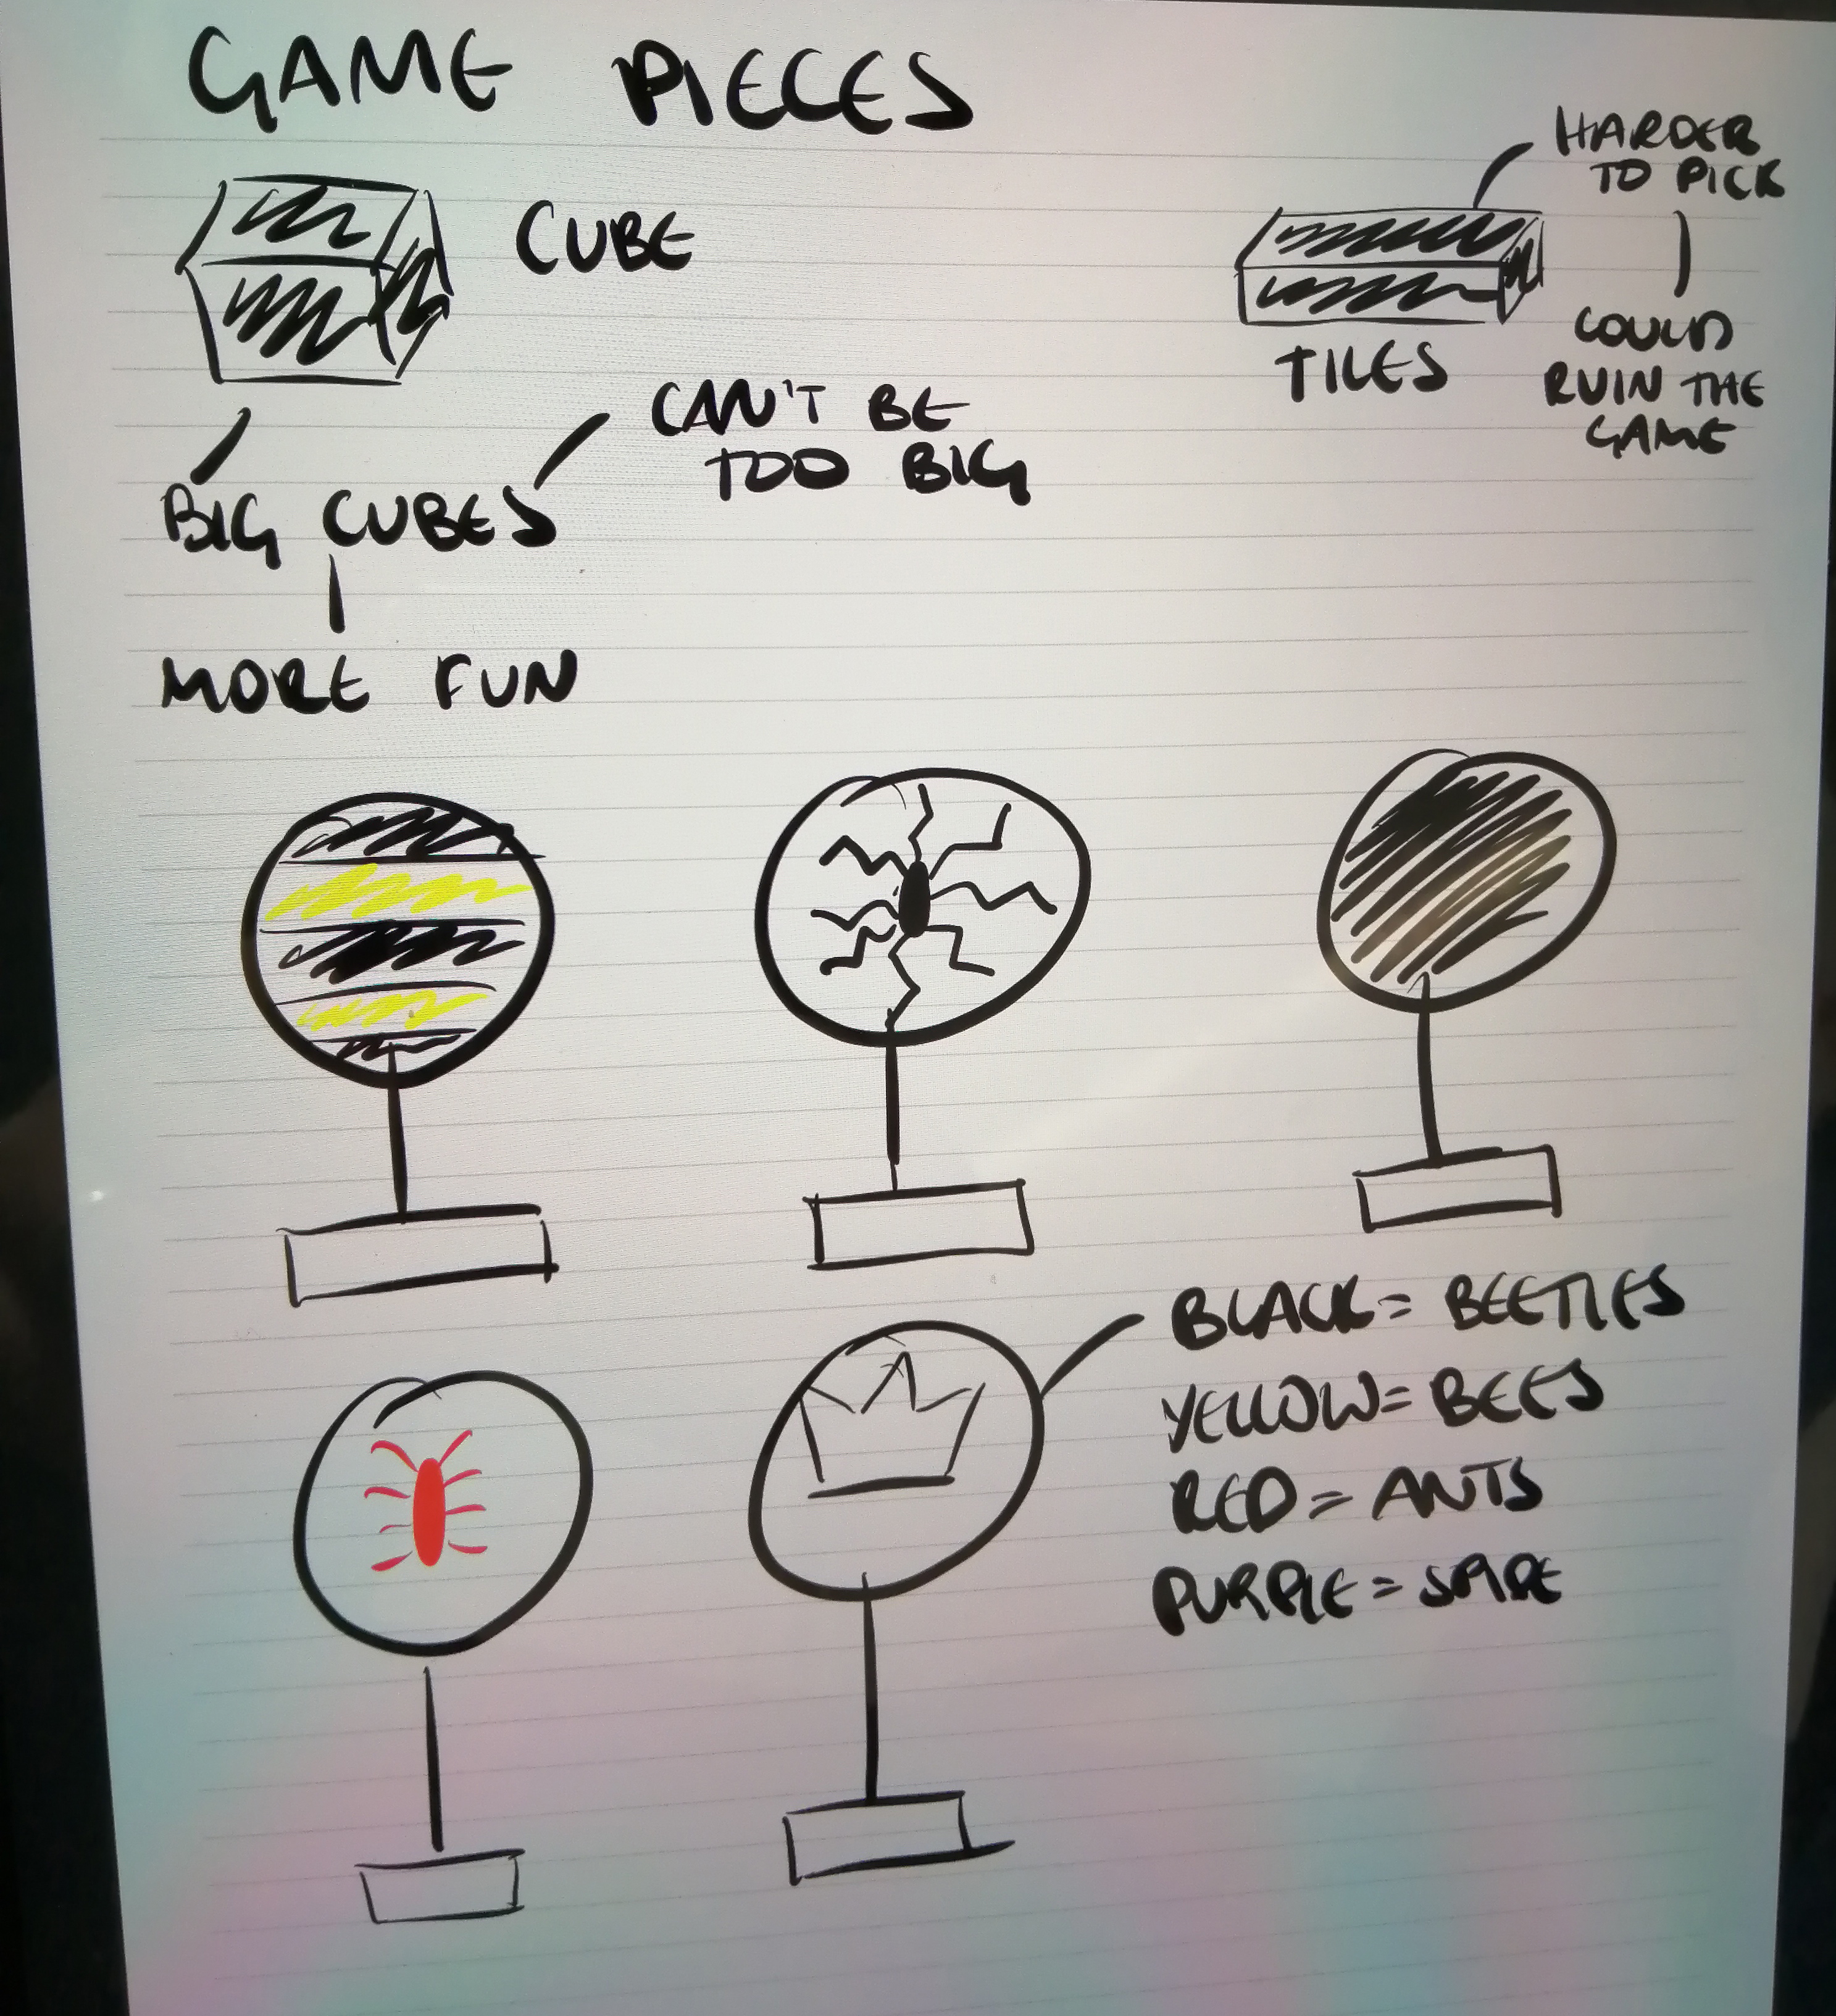 GAME PIECES
CUBE
BIG CUBES
CAN'T BE
TOO BIG
MORE FUN
TILES
HARDER
TO PICK
COULD
RUIN THE
GAME
BLACK = BEETLES
YELLOW = BEES
RED = ANTS
PURPLE =